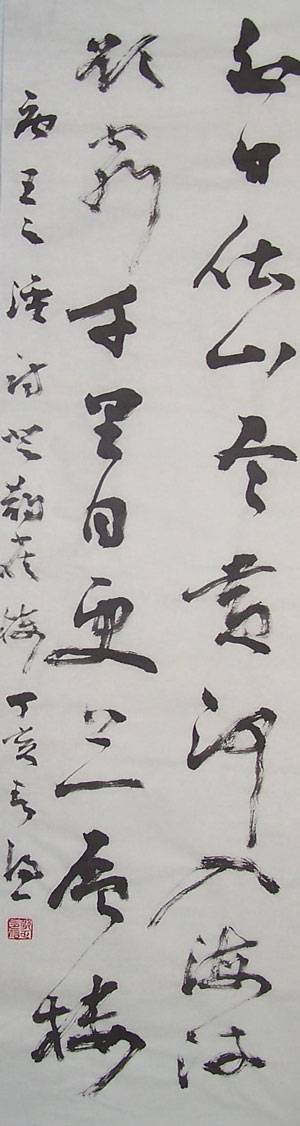 白日依山尽黄河入海流
欲穷千里目更上一层楼
王之涣诗登鹳雀楼 丁亥春